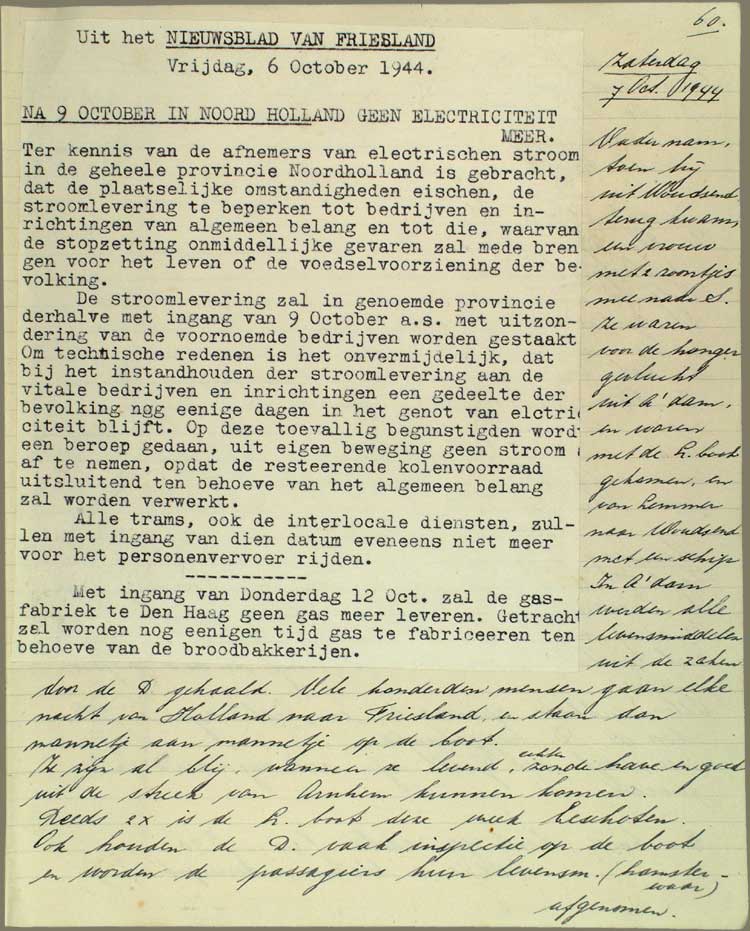 60.
Uit het NIEUWSBLAD VAN FRIESLAND
Vrijdag, 6 October 1944.
NA 9 OCTOBER IN NOORD HOLLAND GEEN ELECTRICITEIT
MEER.
Ter kennis van de afnemers van electrischen stroom
in de geheele provincie Noordholland is gebracht,
dat de plaatselijke omstandigheden eischen, de
stroomlevering te beperken tot bedrijven en in-
richtingen van algemeen belang en tot die, waarvan
de stopzetting onmiddellijke gevaren zal mede bren
gen voor het leven of de voedselvoorziening der be-
volking.
De stroomlevering zal in genoemde provincie
derhalve met ingang van 9 October a.s. met uitzon-
dering van de voornoemde bedrijven worden gestaakt
Om technische redenen is het onvermijdelijk, dat
bij het instandhouden der stroomlevering aan de
vitale bedrijven en inrichtingen een gedeelte der
bevolking nog eenige dagen in het genot van elctri
citeit blijft. Op deze toevallig begunstigden word
een beroep gedaan, uit eigen beweging geen stroom
af te nemen, opdat de resteerende kolenvoorraad
uitsluitend ten behoeve van het algemeen belang
zal worden verwerkt.
Alle trams, ook de interlocale diensten, zul-
len met ingang van dien datum eveneens niet meer
voor het personenvervoer rijden.
-----------
Met ingang van Donderdag 12 Oct. zal de gas-
fabriek te Den Haag geen gas meer leveren. Getracht
zal worden nog eenigen tijd gas te fabriceeren ten
behoeve van de broodbakkerijen.
Zaterdag
7 Oct. 1944
Vader nam,
toen hij
uit Woudsend
terug kwam,
een vrouw
met 2 zoontjes
mee naar S.
Ze waren
voor de honger
gevlucht
uit A'dam,
en waren
met de L. boot
gekomen, en
van Lemmer
naar Woudsend
met een schip
In A'dam
worden alle
levensmiddelen
uit de zaken
door de D. gehaald. Vele honderden mensen gaan elke
nacht van Holland naar Friesland, en staan dan
mannetje aan mannetje op de boot.
Ze zijn al blij, wanneer ze levend, echter zonde have en goed
uit de streek van Arnhem kunnen komen.
Reeds 2x is de L. boot deze week beschoten.
Ook houden de D. vaak inspectie op de boot
en worden de passagiers hun levensm. (hamster-
waar)
afgenomen.